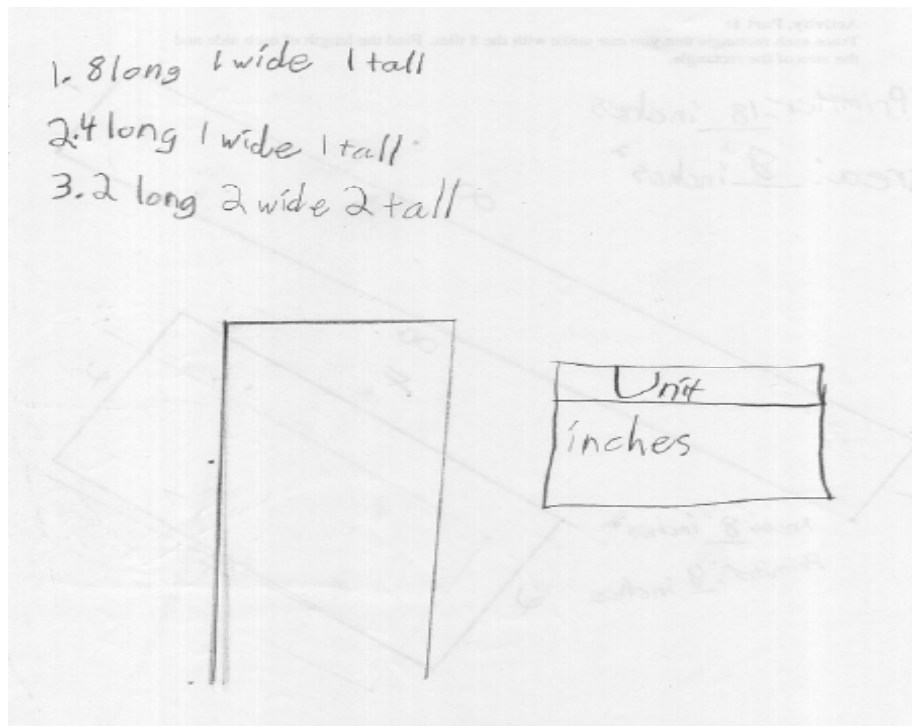 1. 8 long 1 wide 1 tall
2. 4 long 1 wide 1 tall
3. 2 long 2 wide 2 tall
Unit
inches